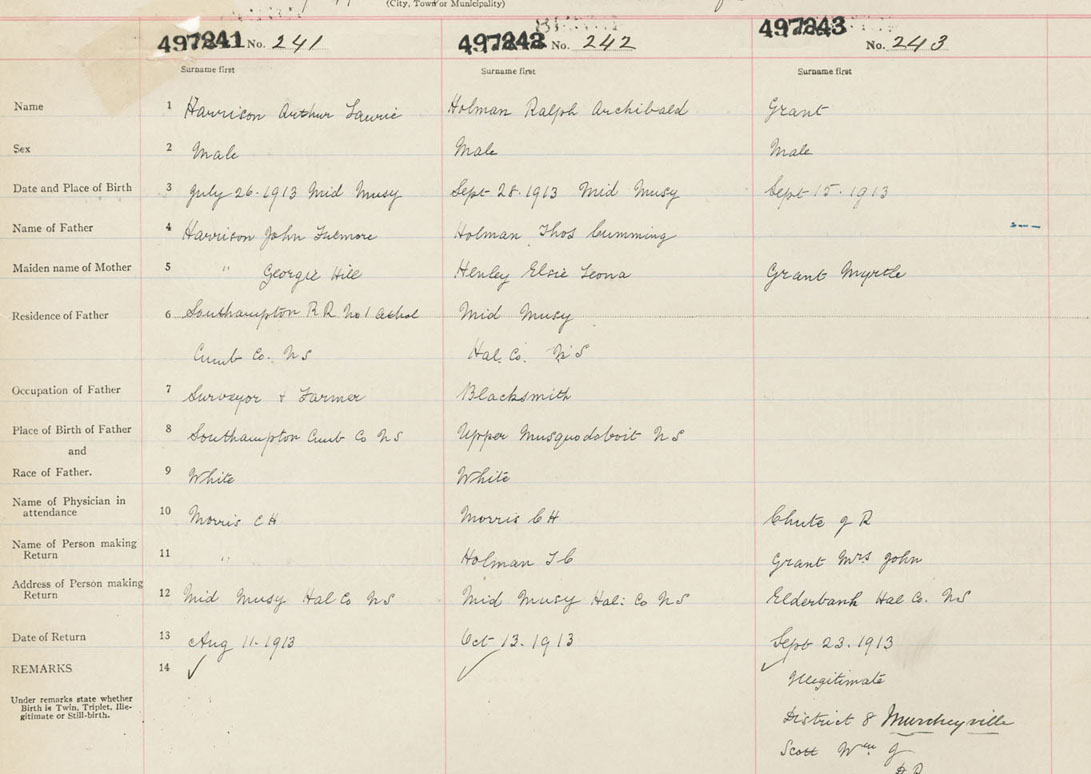 (City, Town or Municipality)
497241 No. 241
497242 No. 242
497243 No. 243
Surname first
Surname first
Surname first
Name 1 Harrison Arthur Lawrie Holman Ralph Archibald Grant
Sex 2 Male Male Male
Date and Place of Birth 3 July 26-1913 Mid Musy Sept 28-1913 Mid Musy Sept 15-1913
Name of Father 4 Harrison John Holman Thos Cumming
Maiden name of Mother 5 " Georgie Hill Henley Elsie Leona Grant Myrtle
Residence of Father 6 Southampton R R No 1 Athol Mid Musy
Cumb Co. NS Hal. Co. NS
Occupation of Father 7 Surveyor + Farmer Blacksmith
Place of Birth of Father 8 Southampton Cumb Co NS Upper Musquodoboit NS
and
Race of Father. 9 White White
Name of Physician in
attendance 10 Morris C H Morris C H Chute J R
Name of Person making
Return 11 " Holman T C Grant Mrs John
Address of Person making
Return 12 Mid Musy Hal Co NS Mid Musy Hal: Co NS Elderbank Hal Co. NS
Date of Return 13 Aug 11-1913 Oct 13-1913 Sept 23-1913
REMARKS 14 ✓ ✓ ✓
Illegitimate
Under remarks state whether
Birth is Twin, Triplet, Ille-
gitimate or Still-birth.
District 8 Murcheyville
Scott Wm J
D R